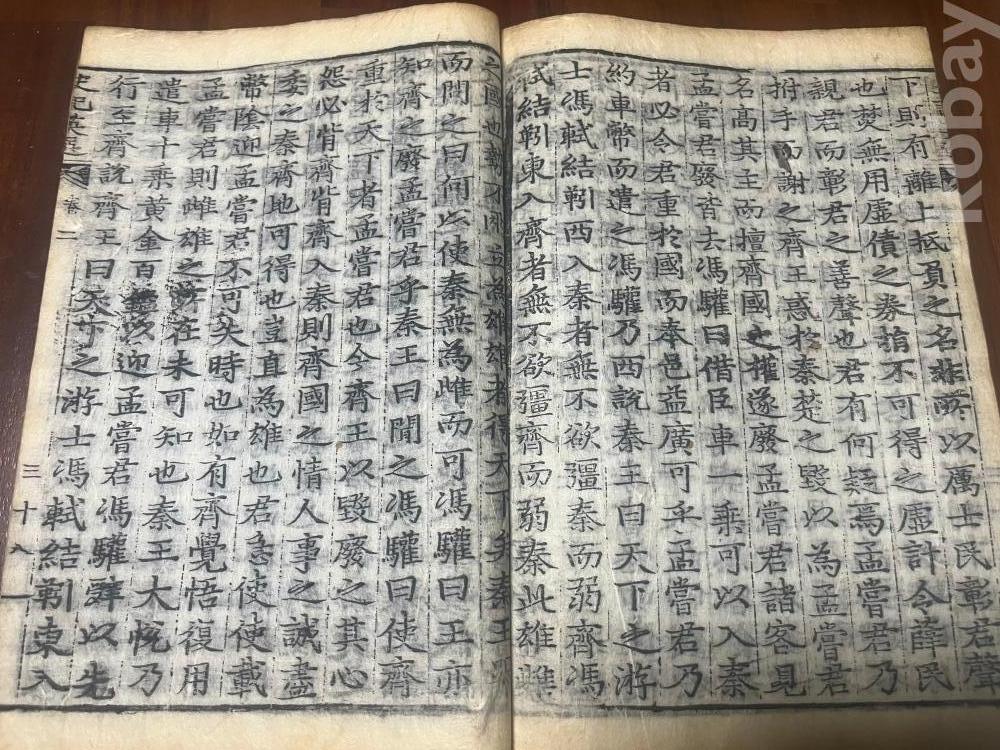 下則有離上抵負之名非所以厲士民彰君聲
也焚無用虛債之券捐不可得之虛計令薛民
親君而彰君之善聲也君有何疑焉孟嘗君乃
拊手而謝之齊王惑於秦楚之毀以為孟嘗君
名高其主而擅齊國之權遂廢孟嘗君諸客見
孟嘗君廢皆去馮驩曰借臣車一乘可以入秦
者必令君重於國而奉邑益廣可乎孟嘗君乃
約車幣而遣之馮驩乃西說秦王曰天下之游
士馮軾結靷西入秦者無不欲彊秦而弱齊馮
軾結靷東入齊者無不欲彊齊而弱秦此雄雌
之國也勢不兩立為雄雄者得天下矣秦王
而問之曰何以使秦無為雌而可馮驩曰王亦
知齊之廢孟嘗君乎秦王曰聞之馮驩曰使齊
重於天下者孟嘗君也今齊王以毀廢之其心
怨必背齊背齊入秦則齊國之情人事之誠盡
委之秦齊地可得也豈直為雄也君急使使載
幣陰迎孟嘗君不可失時也如有齊覺悟復用
孟嘗君則雌雄之所在未可知也秦王大悅乃
遣車十乘黃金百鎰以迎孟嘗君馮驩辭以先
行至齊說齊王曰天下之游士馮軾結靷東入
史記英選 卷二 三十八
kobay